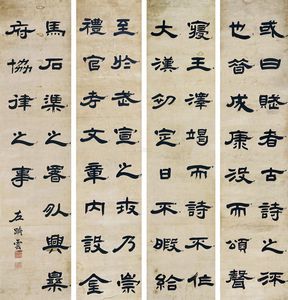 或曰賦者古詩之流
也昔成康沒而頌聲
寢王澤竭而詩不作
大漢初定日不暇給
至於武宣之世乃崇
禮官考文章內設金
馬石渠之署外興樂
府協律之事
左 雲